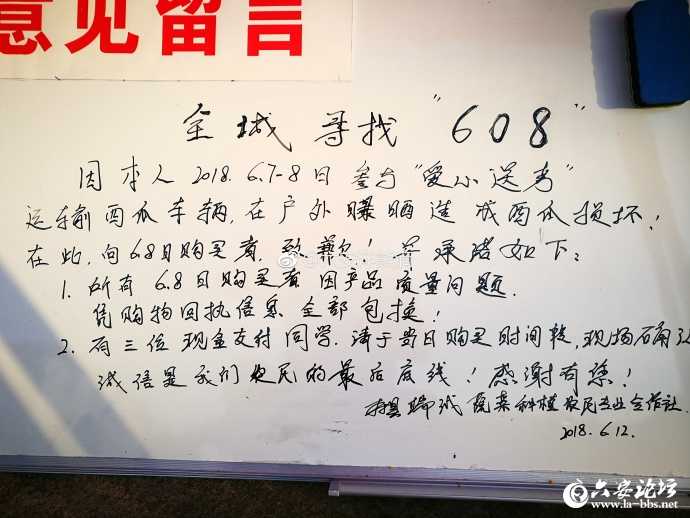 意见留言
全城寻找"608"
因本人2018.6.7-8日参与"爱心送考"
运输西瓜车辆,在户外曝晒造成西瓜损坏!
在此,向6.8日购买者,致歉!并承诺如下:
1.所有6.8日购买者因产品质量问题.
凭购物回执信息全部包换!
2.有三位现金支付同学.请于当日购买时间段,现场确认
诚信是我们农民的最后底线!感谢有您!
瑞诚蔬菜种植农民专业合作社
2018.6.12.
六安论坛
www.la-bbs.net